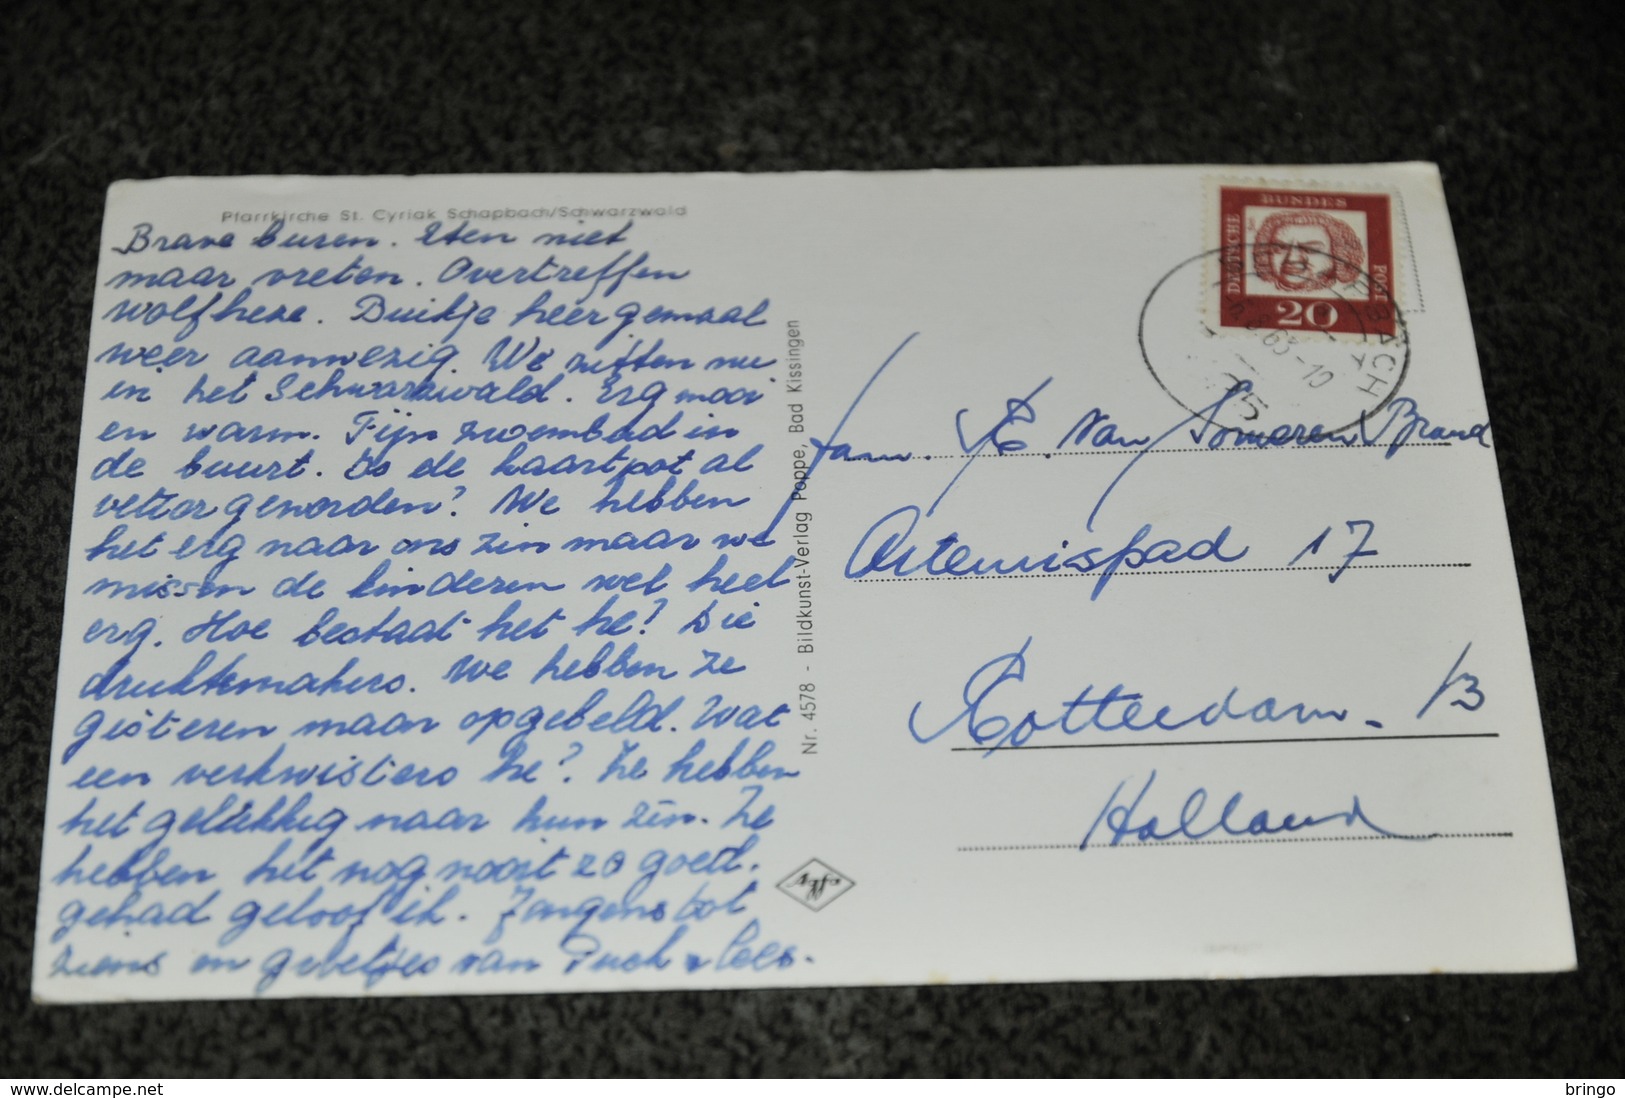 Pfarrkirche St. Cyriak Schapbach/Schwarzwald
Brave buren. Eten niet
maar vreten. Overtreffen
wolfheze. Buikje heer gemaal
weer aanwezig. We zitten nu
in het Schwarzwald. Erg mooi
en warm. Fijn zwembad in
de buurt. Is de kaartpot al
vetzorgeworden? We hebben
het erg naar ons zin maar we
missen de kinderen wel heel
erg. Hoe bestaat het he! Die
druktemakers. We hebben ze
gisteren maar opgebeld. Wat
een verkwisters he? Ze hebben
het gelukkig naar hun zin. Ze
hebben het nog nooit zo goed.
gehad geloof ik. Jongens tot
ziens en groetjes van
Nr. 4578 - Bildkunst-Verlag Poppe, Bad Kissingen
Agfa
DEUTSCHE
BUNDES
POST
20
63-10
Fam. v. Someren Brand
Artemispad 17
Rotterdam - 13
Holland
bringo